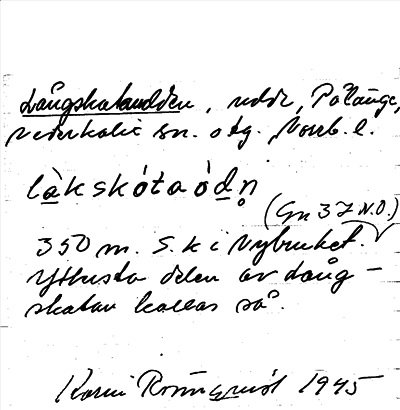 Långskataudden, udde, Pålänge,
Nederkalix sn. o tg., Norrb. l.
làkskótaódn
(Gn 37 N.O.)
350 m. S. k i Nybruket.
Yttersta delen av Lång-
skatan kallas så.
Karin Rönnqvist 1945